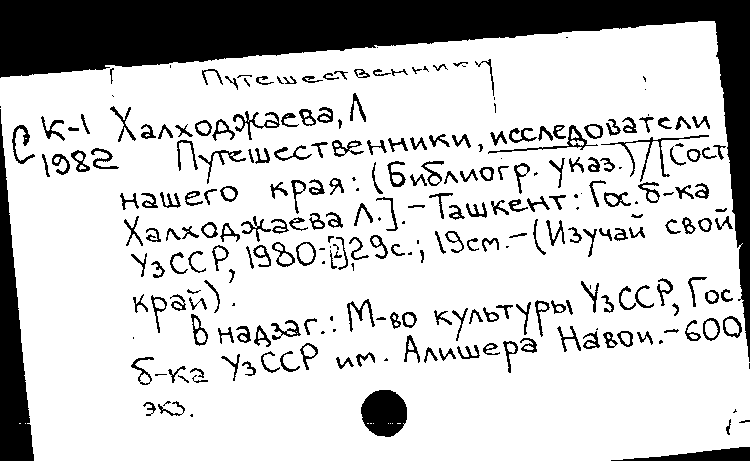 Путешественники
К-1 Халходжаева, Л
1982 Путешественники, исследователи
нашего края: (Библиогр. указ.)/[Сост
Халходжаева Л.].-Ташкент: Гос. б-ка
УзССР, 1980.-[2],29с.; 19см.-(Изучай свой
край).
В надзаг.: М-во культуры УзССР, Гос.
б-ка УзССР им. Алишера Навои.-600
экз.